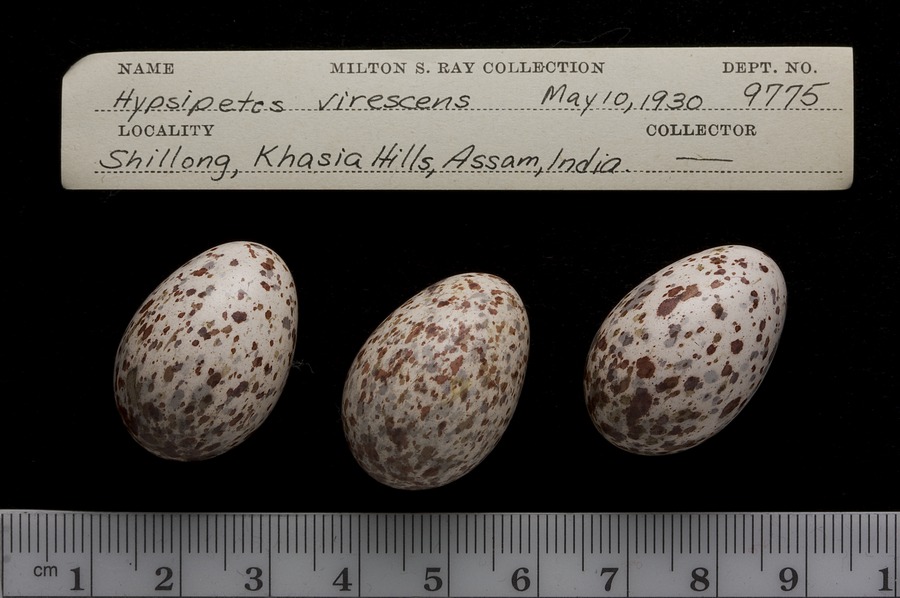 NAME MILTON S. RAY COLLECTION DEPT. NO.
Hypsipetes virescens May 10, 1930 9775
LOCALITY COLLECTOR
Shillong, Khasia Hills, Assam, India. —
cm 1 2 3 4 5 6 7 8 9 1